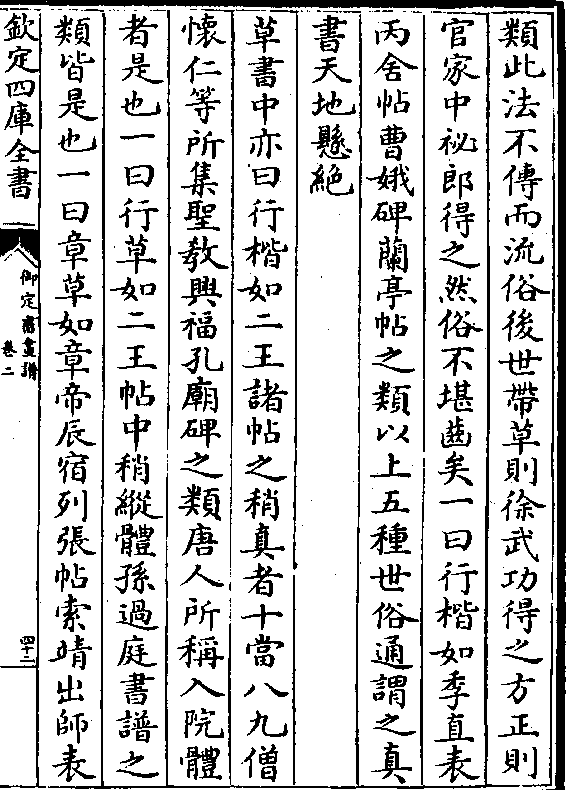 類此法不傳而流俗後世帶草則徐武功得之方正則
官家中祕郎得之然俗不堪齒矣一曰行楷如季直表
丙舍帖曹娥碑蘭亭帖之類以上五種世俗通謂之真
書天地懸絶
草書中亦曰行楷如二王諸帖之稍真者十當八九僧
懷仁等所集聖教興福孔廟碑之類唐人所稱入院體
者是也一曰行草如二王帖中稍縱體孫過庭書譜之
類皆是也一曰章草如章帝辰宿列張帖索靖出師表
欽定四庫全書
御定書畫譜
卷二
四十二